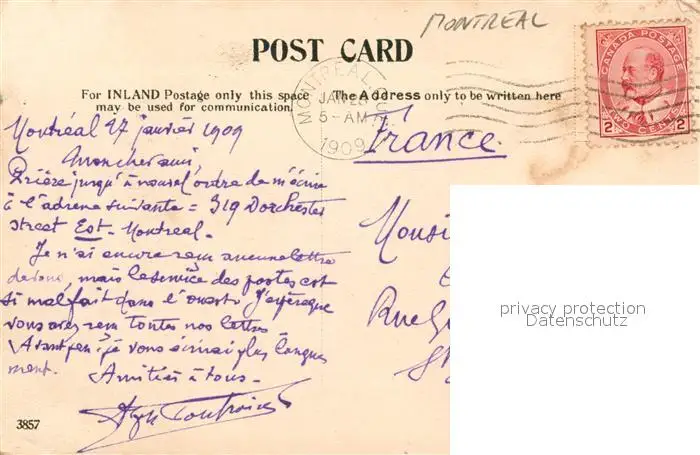 MONTREAL
POST CARD
CANADA POSTAGE
2 TWO CENTS 2
For INLAND Postage only this space
may be used for communication.
The Address only to be written here
MONTREAL
JAN 28
5-AM
1909
France
Montréal 27 janvier 1909
Mon cher ami,
Prière jusqu'à nouvel ordre de m'écrire
à l'adresse suivante = 319 Dorchester
street Est - Montreal -
Je n'ai encore reçu aucune lettre
de vous, mais le service des postes est
si mal fait dans l'ouest. J'espère que
vous avez reçu toutes nos lettres
Avant peu je vous écrirai plus longue
ment. Amitiés à tous -
3857
Monsi
Rue
St
privacy protection
Datenschutz